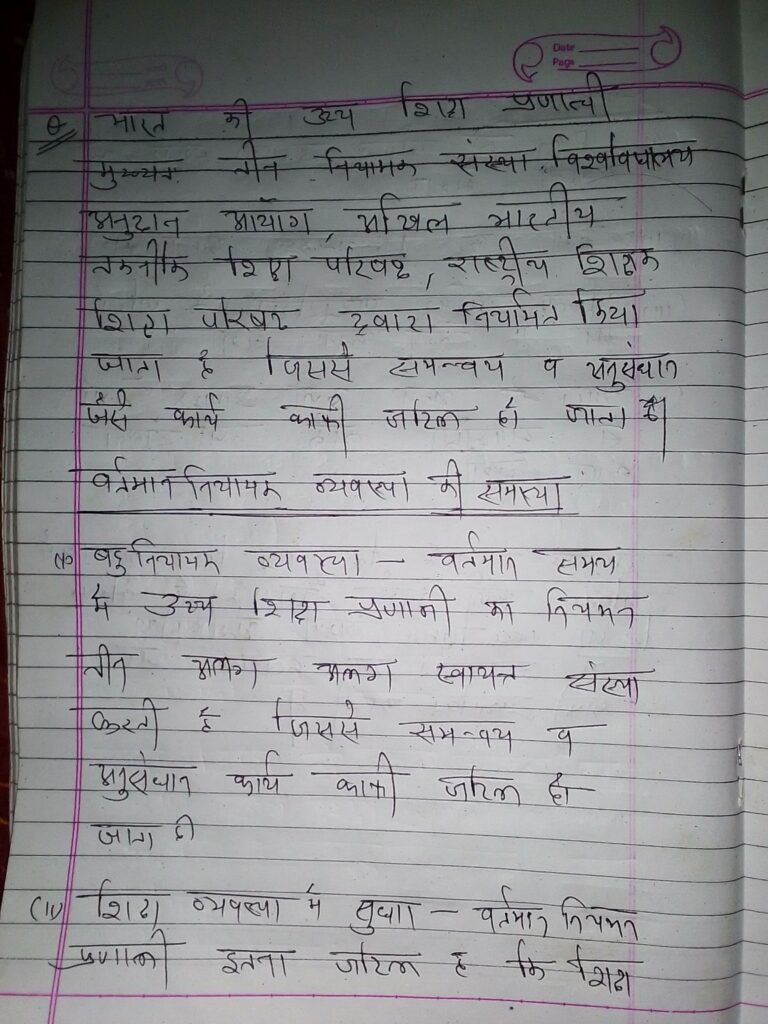 Date
Page
Q. भारत की उच्च शिक्षा प्रणाली
मुख्यतः तीन नियामक संस्था विश्वविद्यालय
अनुदान आयोग, अखिल भारतीय
तकनीकि शिक्षा परिषद, राष्ट्रीय शिक्षक
शिक्षा परिषद द्वारा नियमित किया
जाता है जिससे समन्वय व अनुसंधान
जैसे कार्य काफी जटिल हो जाता है।
वर्तमान नियामक व्यवस्था की समस्या
बहु नियामक व्यवस्था – वर्तमान समय
में उच्च शिक्षा प्रणाली का नियमन
तीन अलग अलग स्वायत्त संस्था
करती है जिससे समन्वय व
अनुसंधान कार्य काफी जटिल हो
जाता है।
शिक्षा व्यवस्था में सुधार – वर्तमान नियमन
प्रणाली इतना जटिल है कि शिक्षा